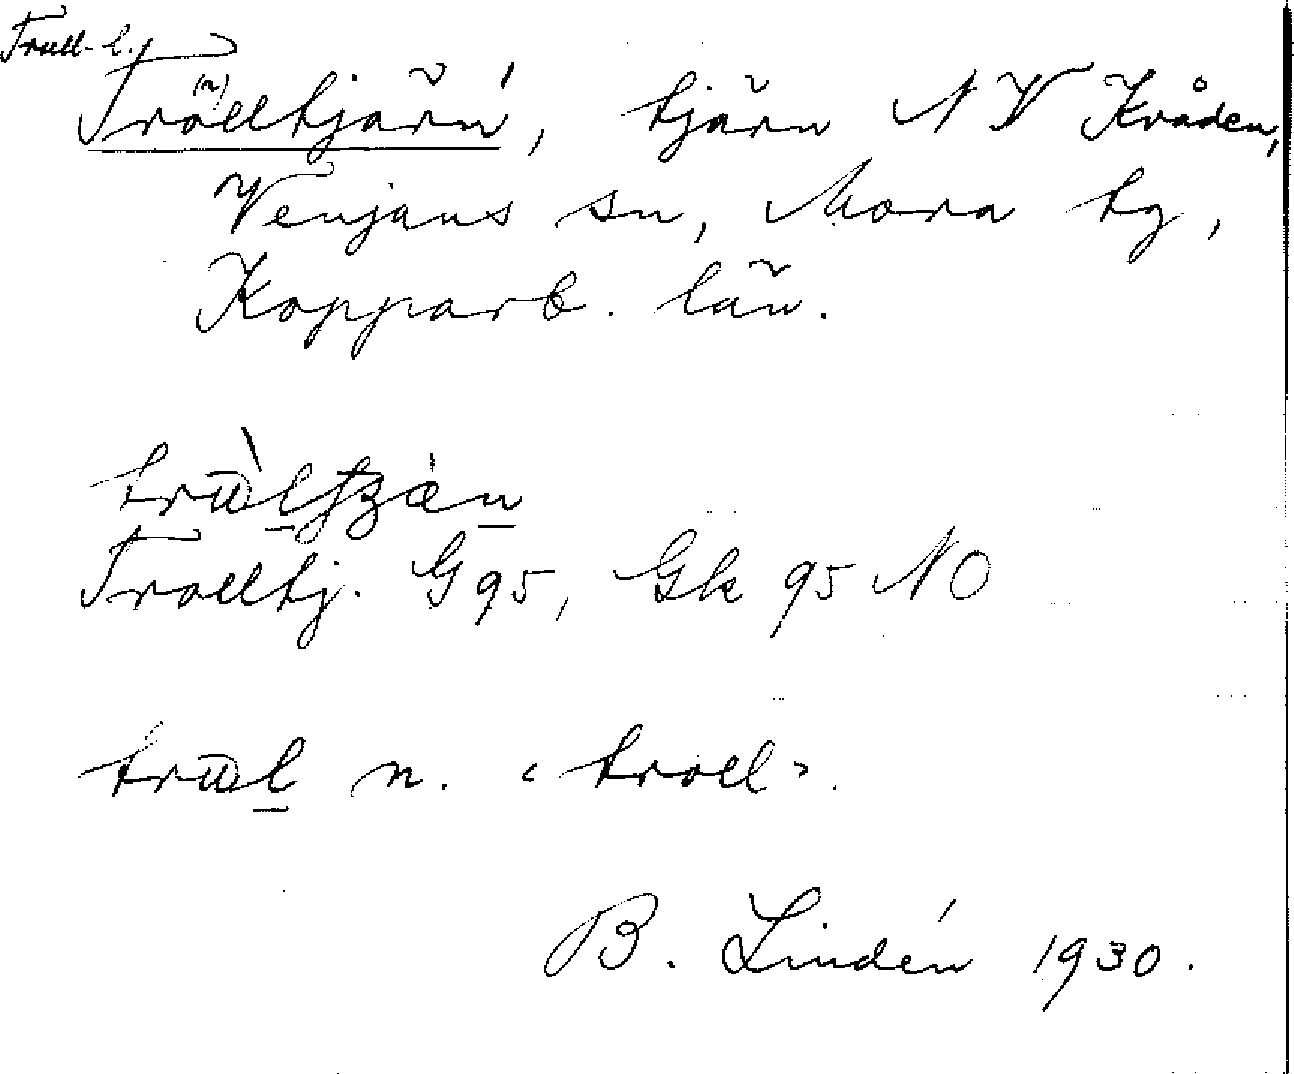 Trull- l.
Trolltjärn, tjärn NV Kråden,
Venjans sn, Mora tg,
Kopparb. län.
Trolltj. G 95, Gk 95 NO
n. ‹troll›.
B. Lindén 1930.